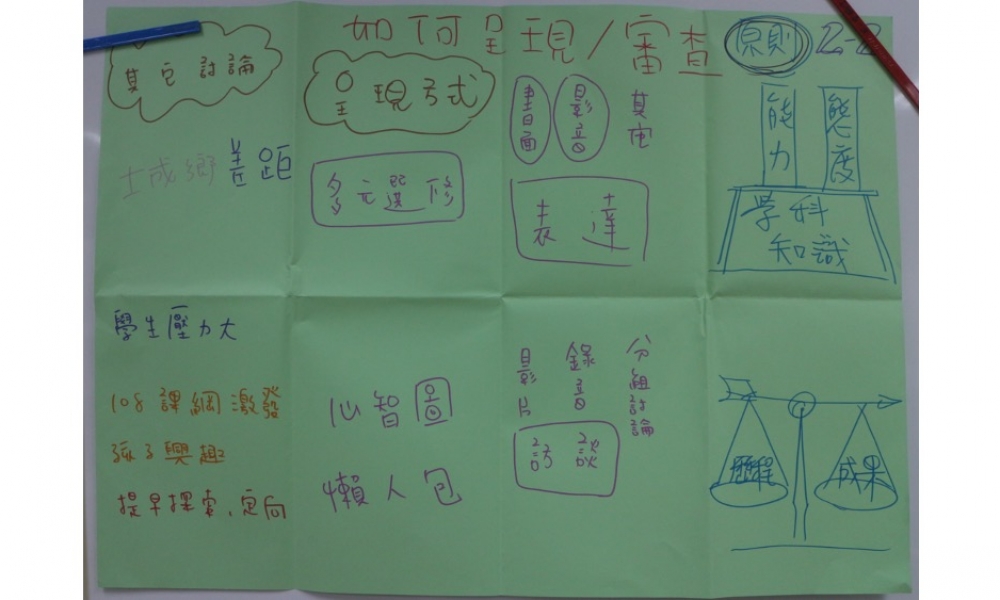 如何呈現/審查
原則
2-2
其它討論
城鄉差距
學生壓力大
108課綱激發
孩子興趣
提早探索、定向
呈現方式
多元選修
心智圖
懶人包
書面
影音
其它
表達
影片
錄音
分組討論
訪談
能力
態度
学科
知識
歷程
成果